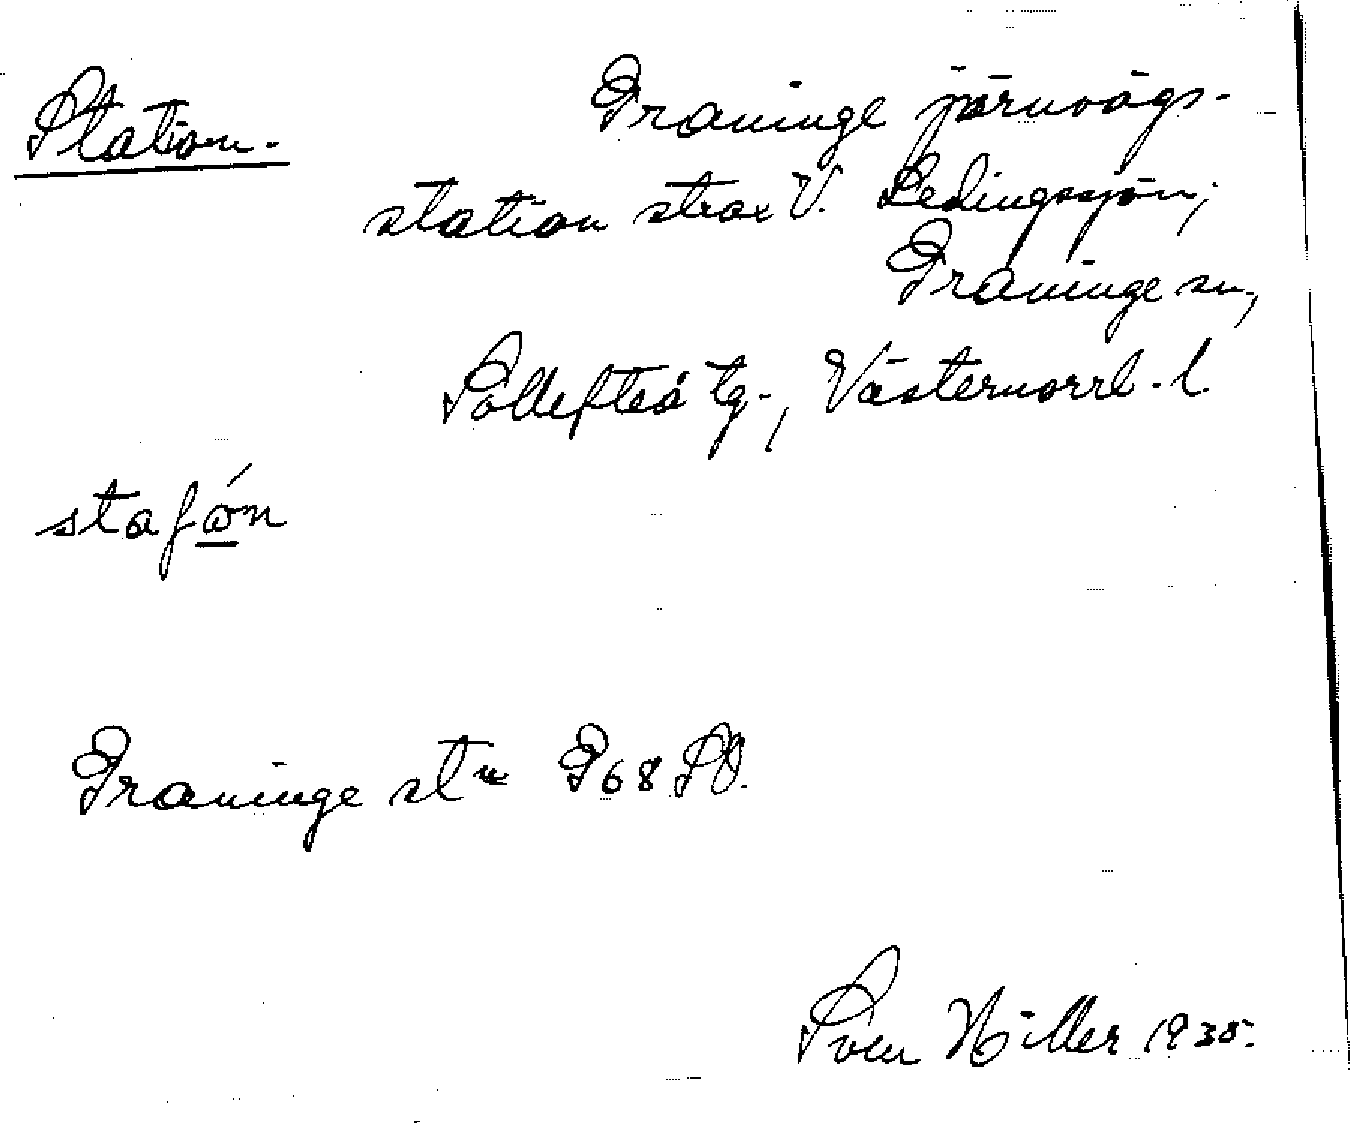 Station.
Graninge järnvägs-
station strax V. Ledingssjön,
Graninge sn,
Sollefteå tg., Västernorrl. l.
stafọ́n
Graninge stn G68 SO.
Sven Hiller 1935.